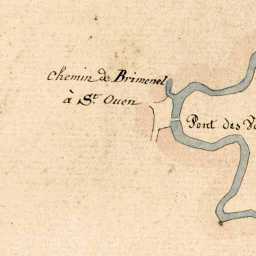 Chemin de Brimenel
à St. Ouen
Pont des